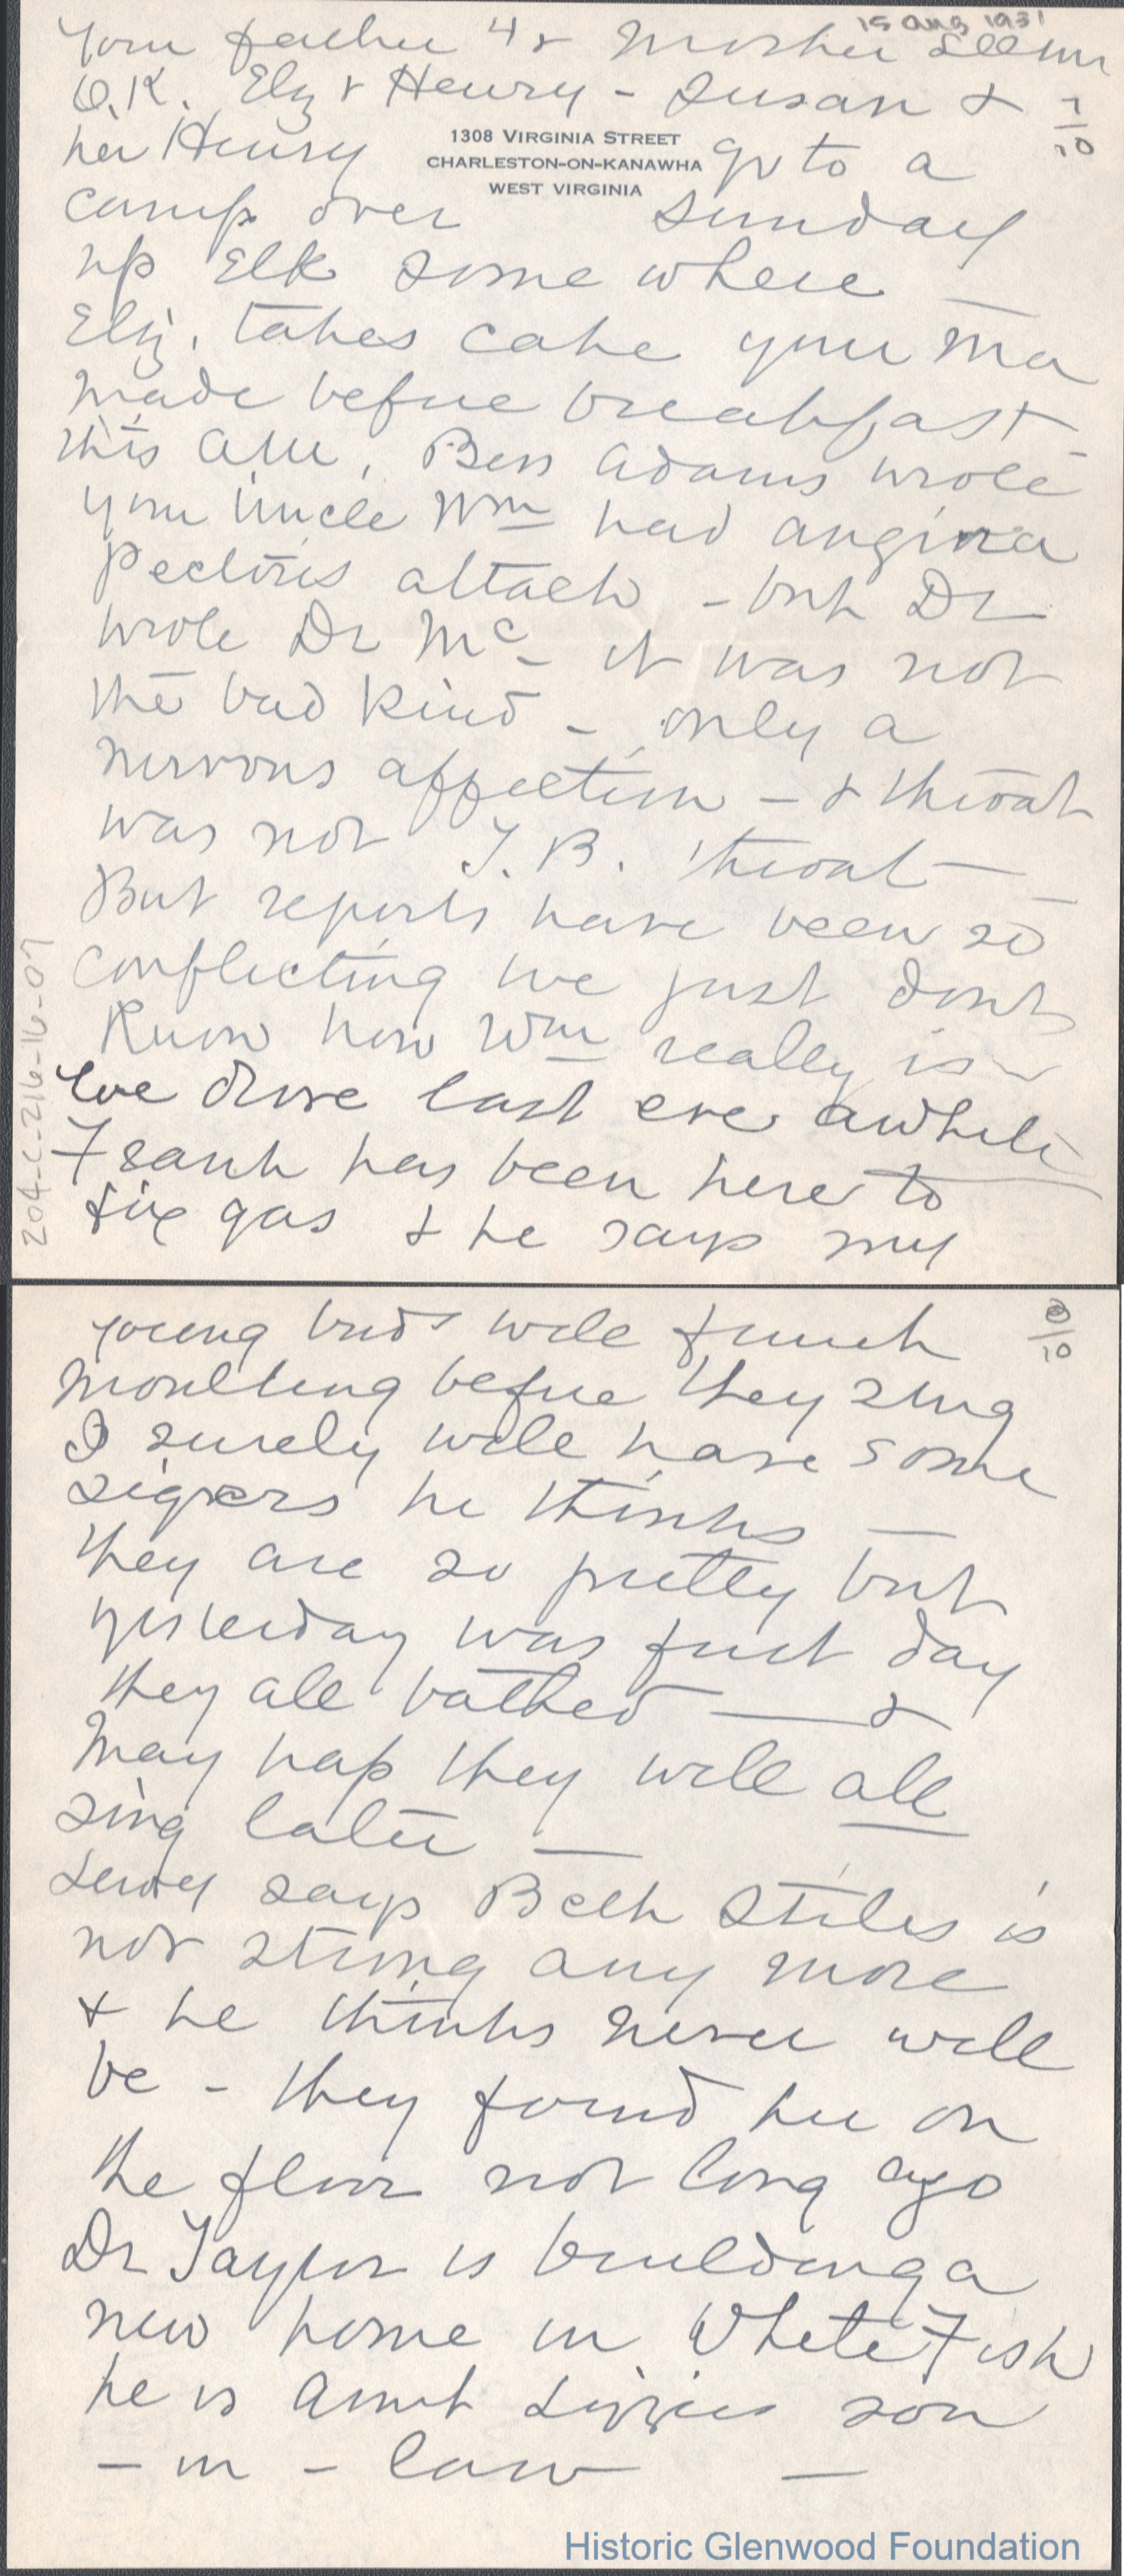 15 Aug 1931
your father & Mother seem
O.K. Eliz & Henry - Susan &
7/10
her Henry go to a
1308 VIRGINIA STREET
CHARLESTON-ON-KANAWHA
WEST VIRGINIA
camp over Sunday
up Elk some where —
Eliz. takes cake your Ma
made before breakfast
this am. Bess Adams wrote
your Uncle Wm had angina
Pectoris attack - but Dr
wrote Dr Mc - it was not
the bad kind - only a
nervous affection - & throat
was not T.B. throat —
But reports have been so
conflicting we just dont
Know how Wm really is
We drove last eve awhile
Frank has been here to
fix gas & he says my
204-C-216-16-07
young birds will finish
8/10
moulting before they sing
I surely will have some
sigers he thinks —
they are so pretty but
yesterday was first day
they all bathed — &
May hap they will all
sing later —
says Beth Stiles is
not strong any more
& he thinks never will
be - they found her on
the floor not long ago
Dr Taylor is building a
new home in White Fish
he is Aunt Lizzies son
- in - law —
Historic Glenwood Foundation